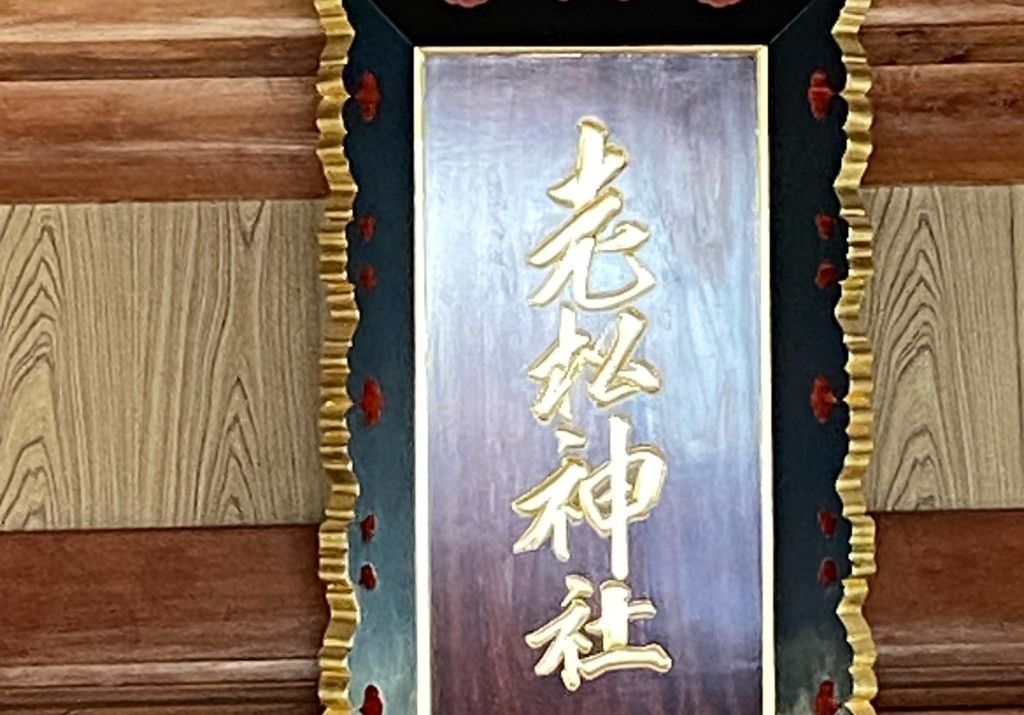 老松神社